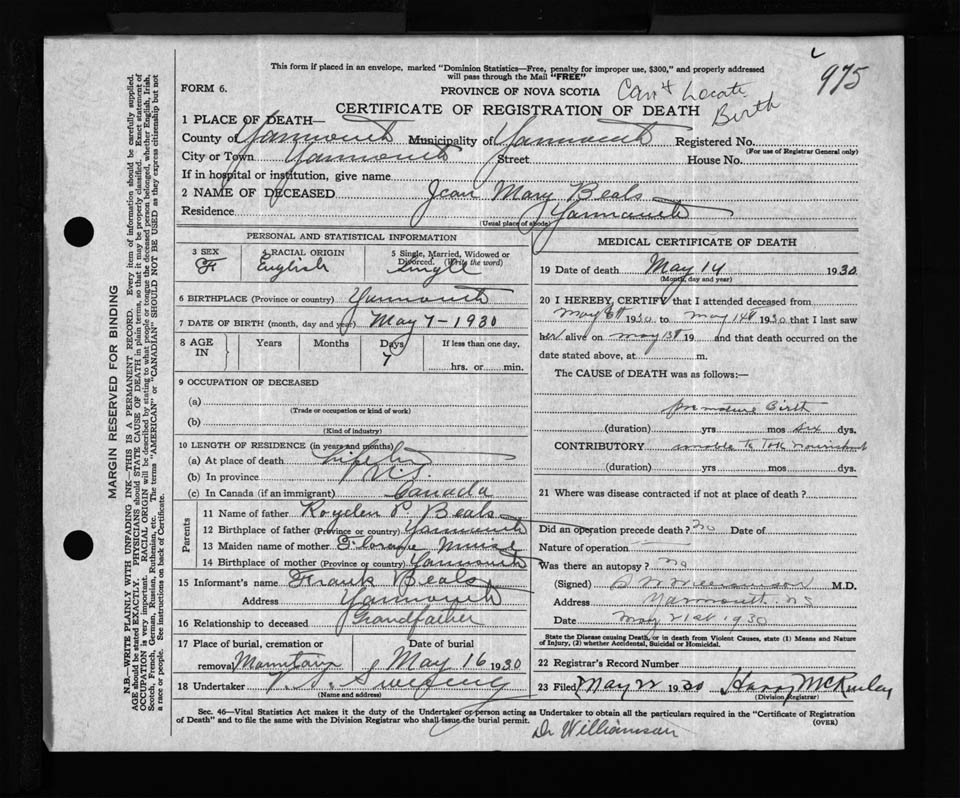 This form if placed in an envelope, marked "Dominion Statistics—Free, penalty for improper use, $300," and properly addressed
will pass through the Mail "FREE"
975
FORM 6.
PROVINCE OF NOVA SCOTIA
Can't Locate
Birth
CERTIFICATE OF REGISTRATION OF DEATH
1 PLACE OF DEATH—
County of Yarmouth Municipality of Yarmouth Registered No.
(For use of Registrar General only)
City or Town Yarmouth Street House No.
If in hospital or institution, give name
2 NAME OF DECEASED Jean Mary Beals
Residence Yarmouth
(Usual place of abode)
PERSONAL AND STATISTICAL INFORMATION
3 SEX 4 RACIAL ORIGIN 5 Single, Married, Widowed or
Divorced. (Write the word)
F English Single
6 BIRTHPLACE (Province or country) Yarmouth
7 DATE OF BIRTH (month, day and year) May 7-1930
8 AGE IN Years Months Days If less than one day,
7 hrs. or min.
9 OCCUPATION OF DECEASED
(a)
(Trade or occupation or kind of work)
(b)
(Kind of industry)
10 LENGTH OF RESIDENCE (in years and months)
(a) At place of death
(b) In province
(c) In Canada (if an immigrant) Canada
Parents
11 Name of father Royden P. Beals
12 Birthplace of father (Province or country) Yarmouth
13 Maiden name of mother
14 Birthplace of mother (Province or country) Yarmouth
15 Informant's name Frank Beals
Address Yarmouth
16 Relationship to deceased Grandfather
17 Place of burial, cremation or Date of burial
removal Mountain May 16 1930
18 Undertaker V. S. Sweeney
(Name and address)
MEDICAL CERTIFICATE OF DEATH
19 Date of death May 14 1930
(Month, day and year)
20 I HEREBY, CERTIFY that I attended deceased from
May 1930 to May 14th 1930 that I last saw
her alive on May 13th 19 and that death occurred on the
date stated above, at m.
The CAUSE of DEATH was as follows:—
premature Birth
(duration) yrs mos six dys.
CONTRIBUTORY unable to take nourishment
(duration) yrs mos dys.
21 Where was disease contracted if not at place of death?
Did an operation precede death? no Date of
Nature of operation
Was there an autopsy? no
(Signed) Williamson M.D.
Address Yarmouth NS
Date May 21st 1930
State the Disease causing Death, or in death from Violent Causes, state (1) Means and Nature
of Injury, (2) whether Accidental, Suicidal or Homicidal.
22 Registrar's Record Number
23 Filed May 22 1930 Harry McKinley
(Division Registrar)
Sec. 46—Vital Statistics Act makes it the duty of the Undertaker or person acting as Undertaker to obtain all the particulars required in the "Certificate of Registration
of Death" and to file the same with the Division Registrar who shall issue the burial permit.
(OVER)
Dr Williamson
MARGIN RESERVED FOR BINDING
N.B.—WRITE PLAINLY WITH UNFADING INK—THIS IS A PERMANENT RECORD. Every item of information should be carefully supplied.
AGE should be stated EXACTLY. PHYSICIANS should STATE CAUSE OF DEATH in plain terms, so that it may be properly classified. Exact statement of
OCCUPATION is very important. RACIAL ORIGIN will be described by stating to what people or tongue the deceased person belonged, whether English, Irish,
Scotch, French, German, Russian, Ruthenian, etc. The terms "AMERICAN" or "CANADIAN" SHOULD NOT BE USED as they express citizenship but not
a race or people. See instructions on back of Certificate.